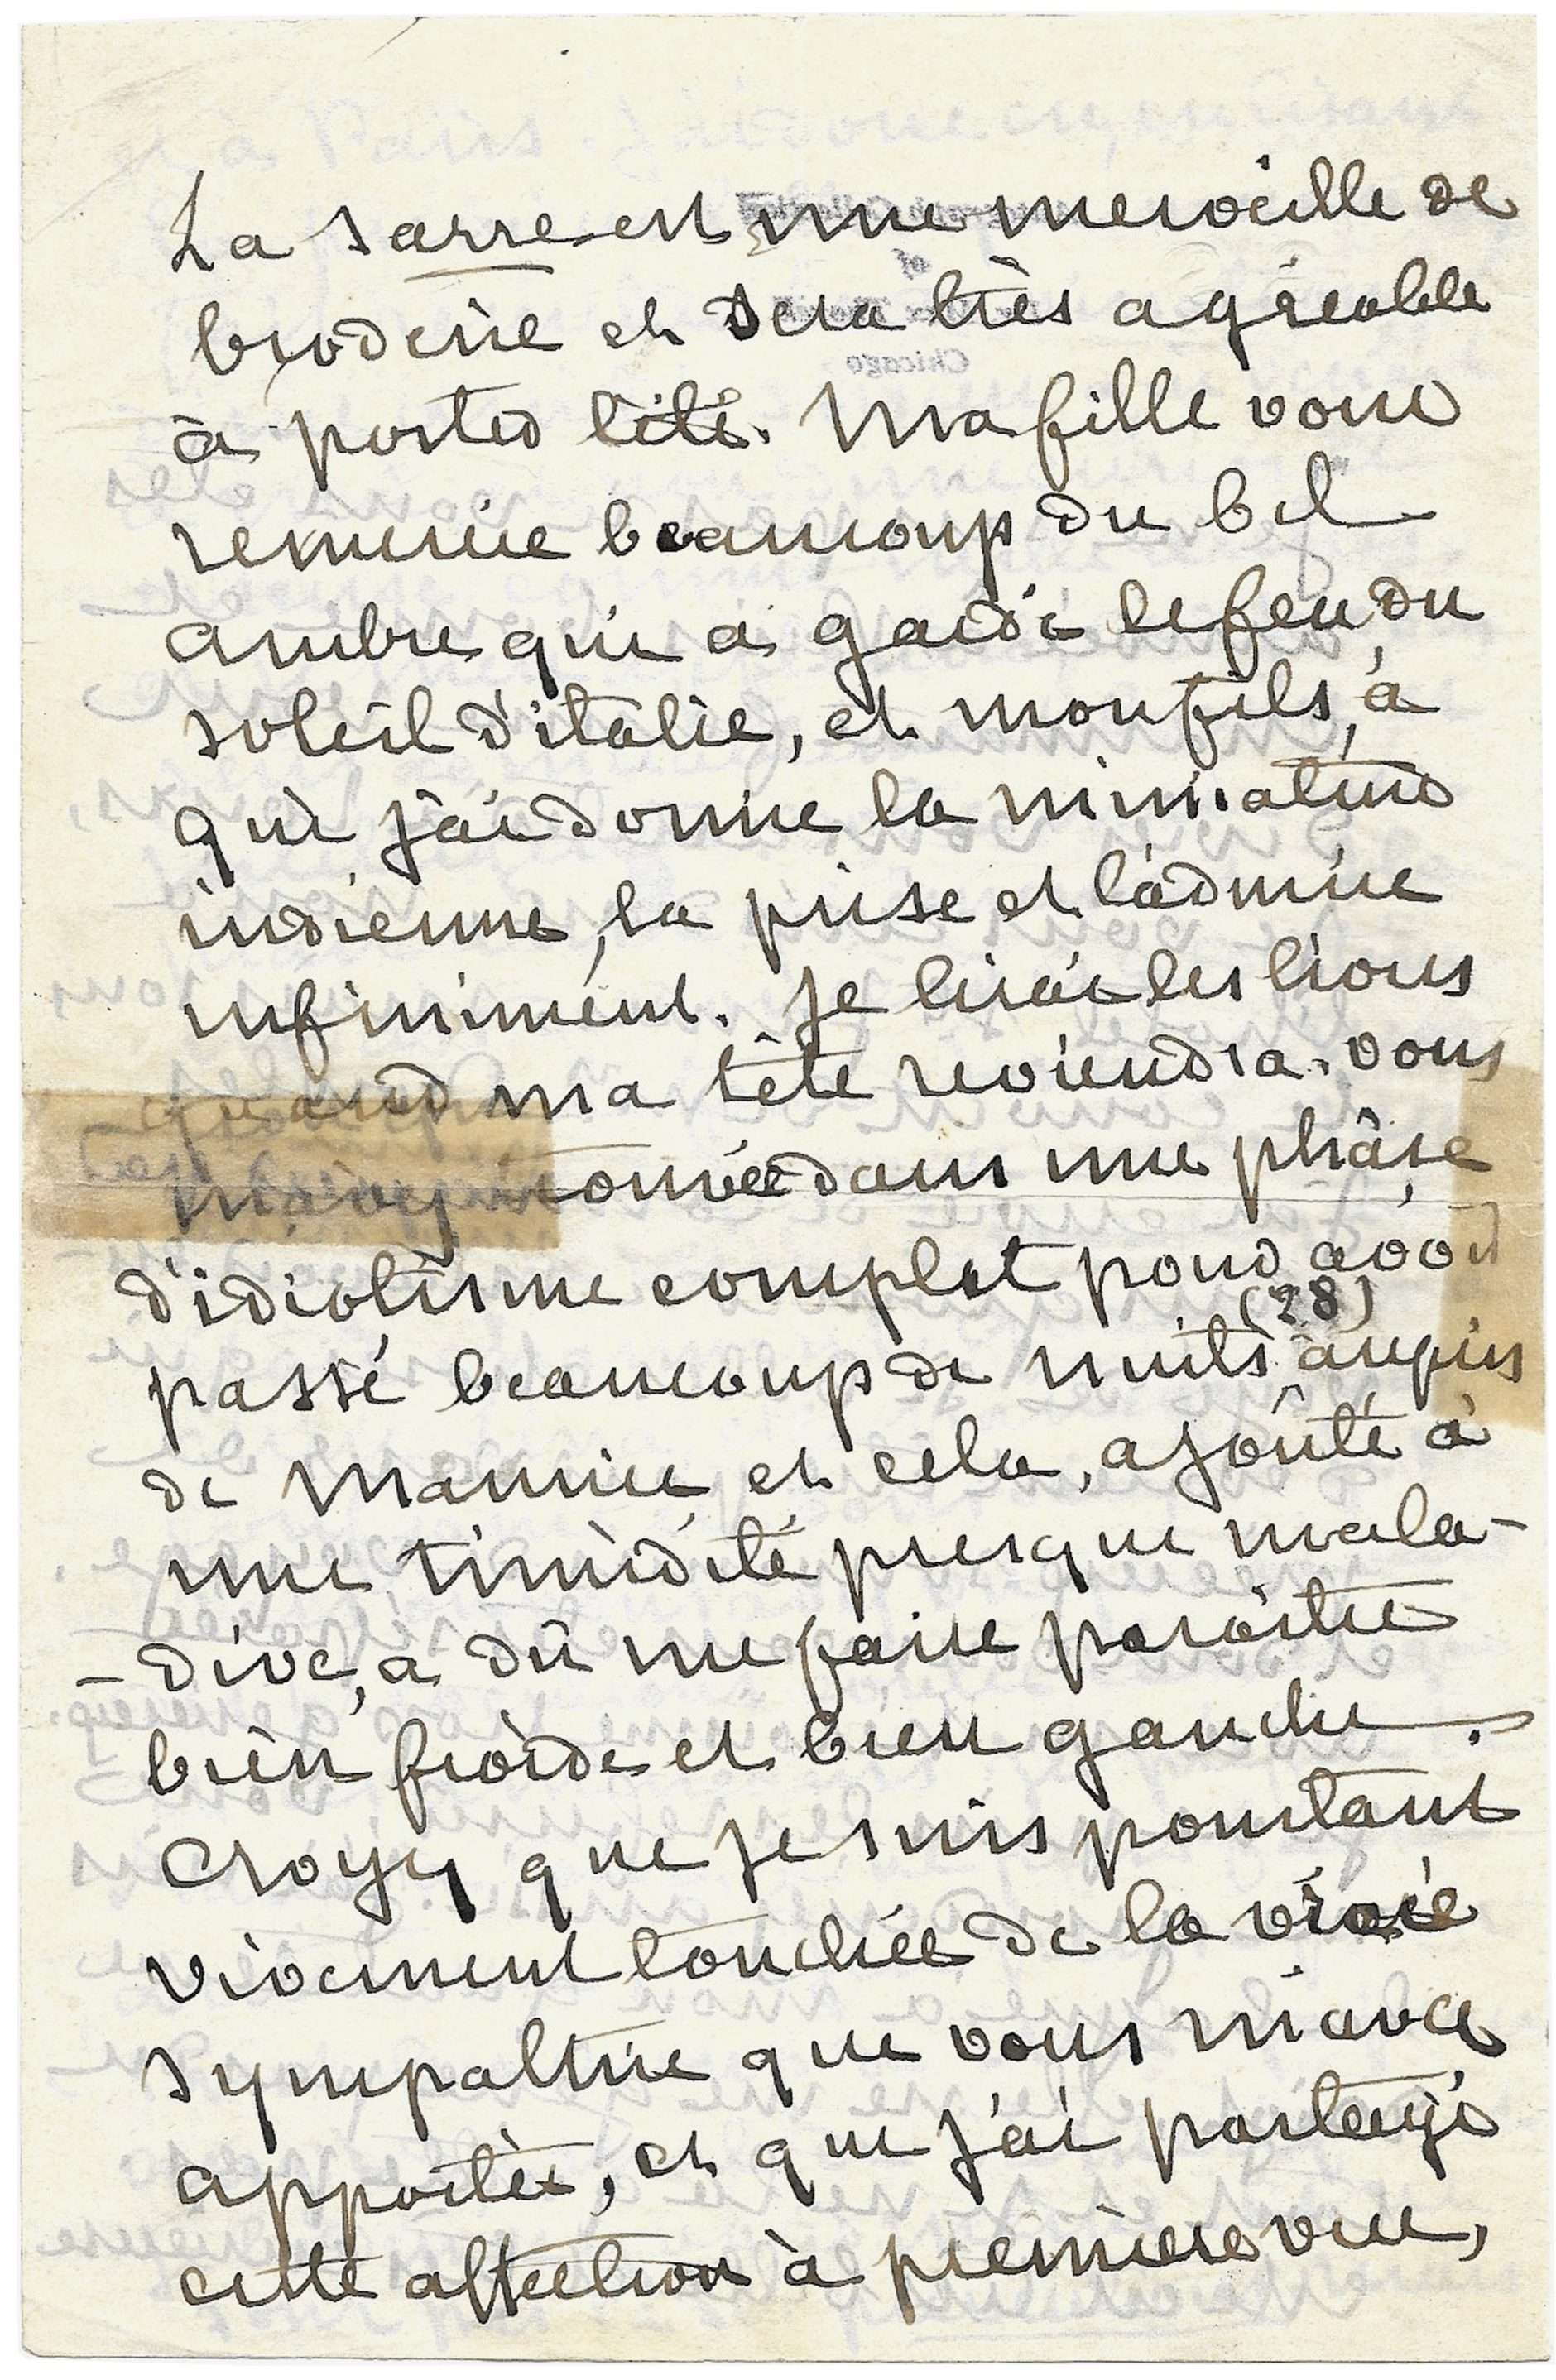 La sarre est une merveille de
broderie et sera très agréable
à porter l'été. Ma fille vous
remercie beaucoup du bel
ambre qui a gardé le feu du
soleil d'italie, et mon fils, à
qui j'ai donné la miniature
indienne, la prise et l'admire
infiniment. Je lirai les livres
quand ma tête reviendra. vous
m'avez trouvée dans une phâse
d'idiotisme complet pour avoir
(28)
passé beaucoup de nuits auprès
de Mamie et cela, ajoûté à
une timidité presque mala-
-dive, a dû me faire paraître
bien froide et bien gauche.
Croyez que je suis pourtant
vivement touchée de la vraie
sympathie que vous m'avez
apportée, et que j'ai partagé
cette affection à première vue,
of
Chicago